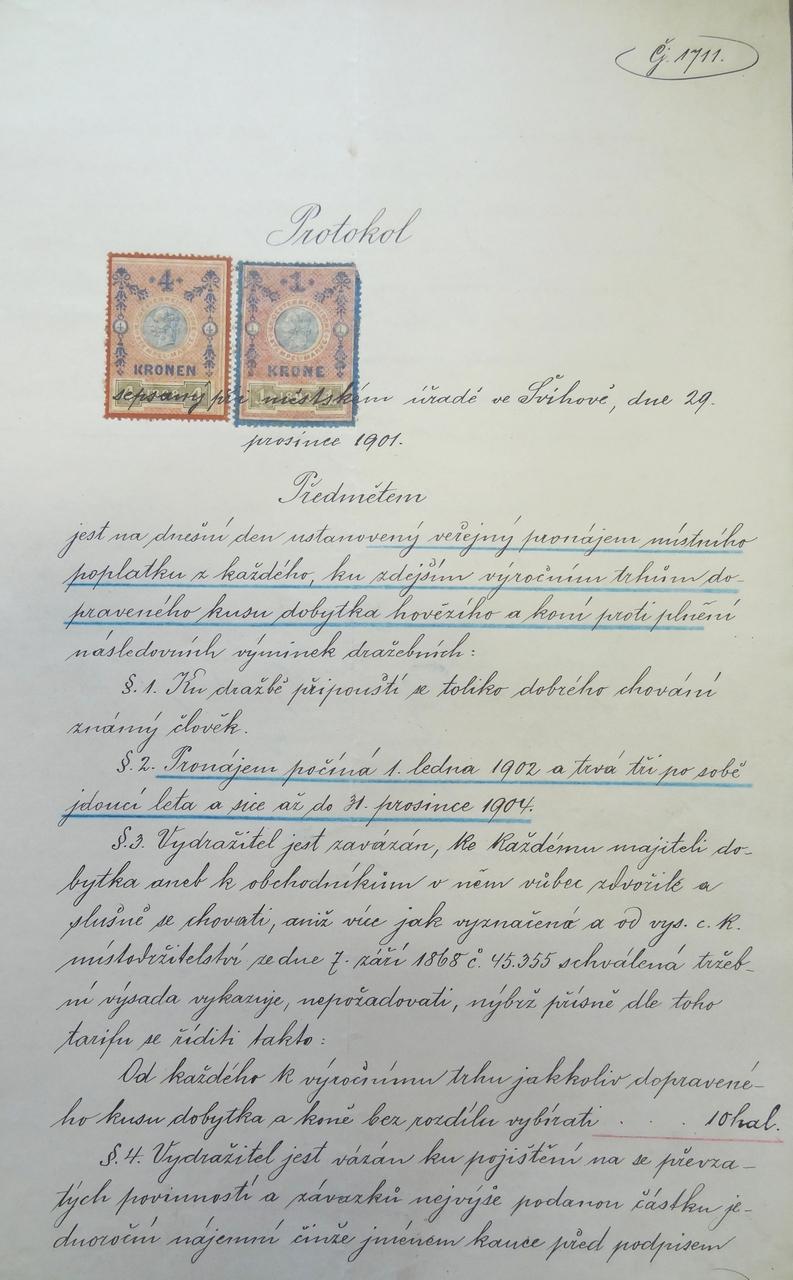 Čj. 1711.
Protokol
4 1
KRONEN KRONE
sepsaný při městském úřadě ve Švihově, dne 29.
prosince 1901.
Předmětem
jest na dnešní den ustanovený veřejný pronájem místního
poplatku z každého, ku zdejším výročním trhům do-
praveného kusu dobytka hovězího a koní proti plnění
následovních výmínek dražebních:
§. 1. Ku dražbě připouští se toliko dobrého chování
známý člověk.
§. 2. Pronájem počíná 1. ledna 1902 a trvá tři po sobě
jdoucí leta a sice až do 31. prosince 1904.
§. 3. Vydražitel jest zavázán, ke každému majiteli do-
bytka aneb k obchodníkům v něm vůbec zdvořile a
slušně se chovati, aniž více jak vyznačená a od vys. c. k.
místodržitelství ze dne 7. září 1868 č. 45.355 schválená tržeb-
ní výsada vykazuje, nepožadovati, nýbrž přísně dle toho
tarifu se říditi takto:
Od každého k výročnímu trhu jakkoliv dopravené-
ho kusu dobytka a koně bez rozdílu vybírati . . . 10 hal.
§. 4. Vydražitel jest vázán ku pojištění na se převza-
tých povinností a závazků nejvýše podanou částku je-
dnoroční nájemní činže jménem kauce před podpisem